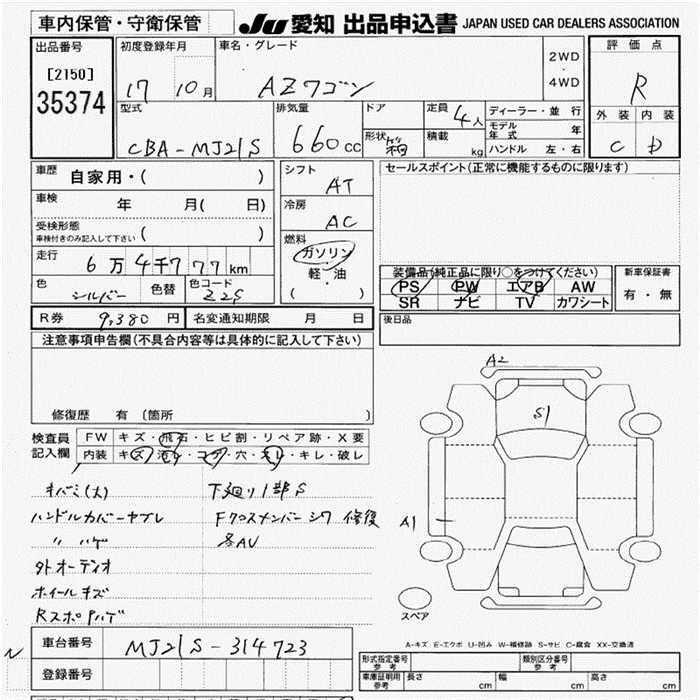 車内保管・守衛保管 JU 愛知 出品申込書 JAPAN USED CAR DEALERS ASSOCIATION
出品番号
[2150]
35374
初度登録年月
17 10月
車名・グレード
AZワゴン
2WD
・
4WD
評価点
R
外装 内装
C D
型式
CBA-MJ21S
排気量
660cc
ドア
形状 箱
定員 4人
積載 kg
ディーラー・並行
モデル年式 年
ハンドル 左・右
車歴
自家用・( )
車検
年 月( 日)
受検形態
車検付きのみ記入して下さい ( )
走行
6万4千777km
色
シルバー
色替
色コード
Z2S
シフト
AT
冷房
AC
燃料
ガソリン
軽・油
( )
セールスポイント(正常に機能するものに限ります)
装備品(純正品に限り○をつけてください)
PS PW エアB AW
SR ナビ TV カワシート
新車保証書
有・無
R券 9,380円 名変通知期限 月 日
後日品
注意事項申告欄(不具合内容等は具体的に記入して下さい)
修復歴 有 (箇所 )
検査員記入欄
FW キズ・飛石・ヒビ割・リペア跡・X要
内装 キズ・汚レ・コゲ・穴・スレ・キレ・破レ
キバミ(大) 下廻り1部S
ハンドルカバーヤブレ Fクロスメンバーシワ 修復
〃 ハゲ 各AU
外オーディオ
ホイールキズ
Rスポハゲ
A2
S1
A1
スペア
A-キズ E-エクボ U-凹み W-補修跡 S-サビ C-腐食 XX-交換済
N
車台番号 MJ21S-314723
登録番号
型式指定番号 参考
類別区分番号 参考
車庫証明用 参考
長さ cm
幅 cm
高さ cm